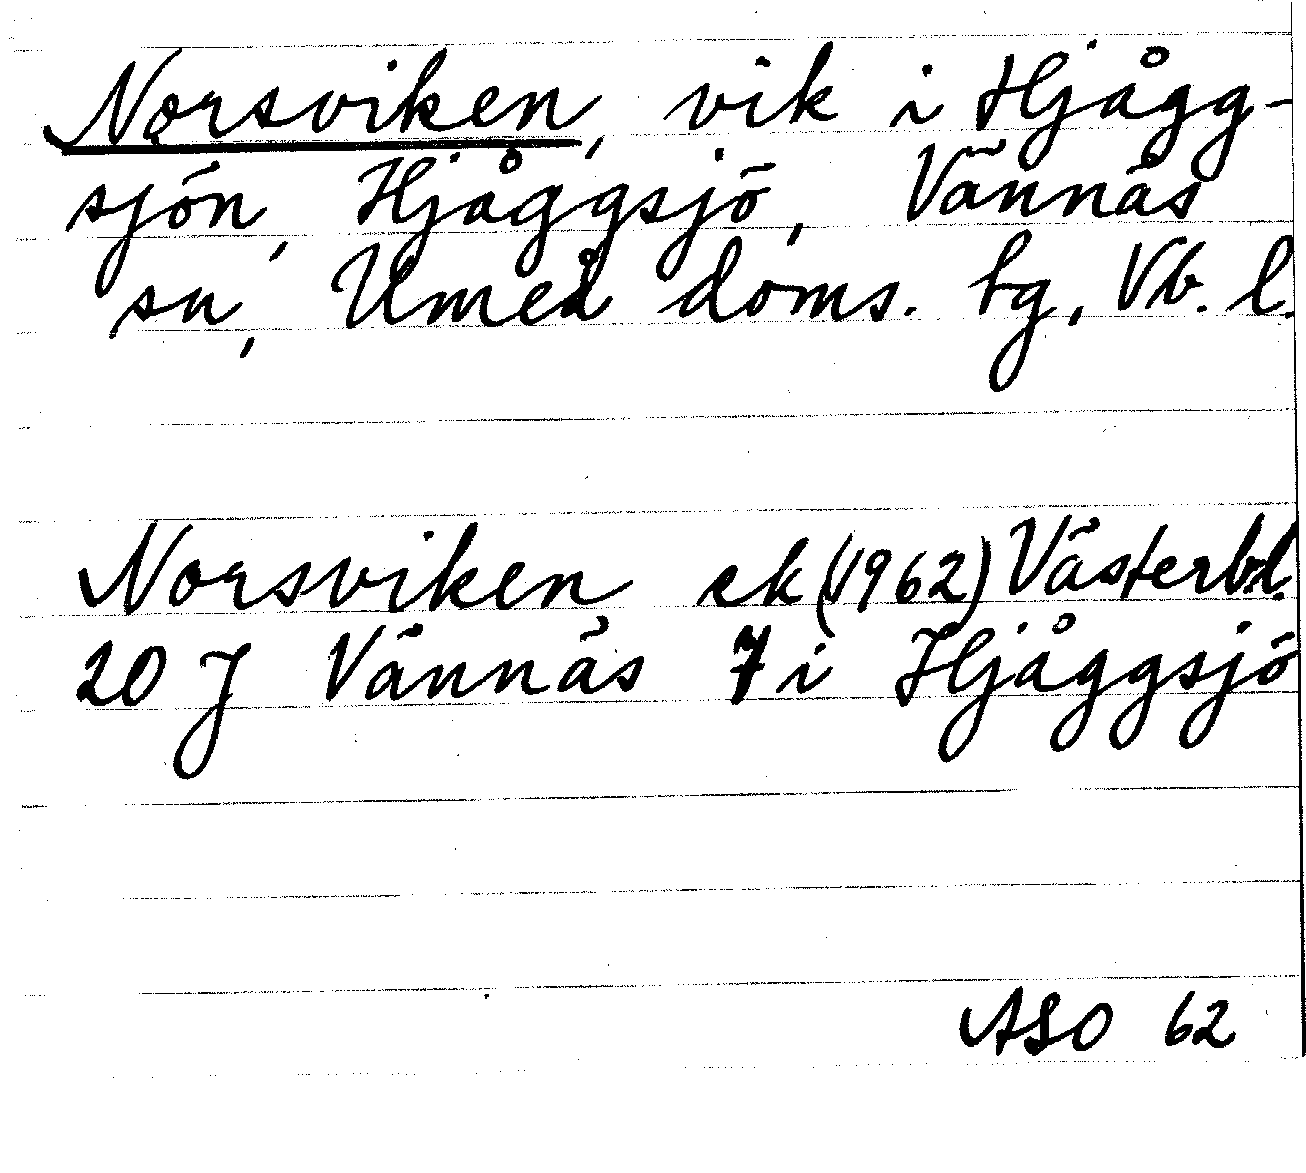 Norsviken, vik i Hjågg-
sjön, Hjåggsjö, Vännäs
sn, Umeå doms. tg, Vb. l.
Norsviken ek (1962) Västerb.l.
20 J Vännäs 7 i Hjåggsjö
ASO 62